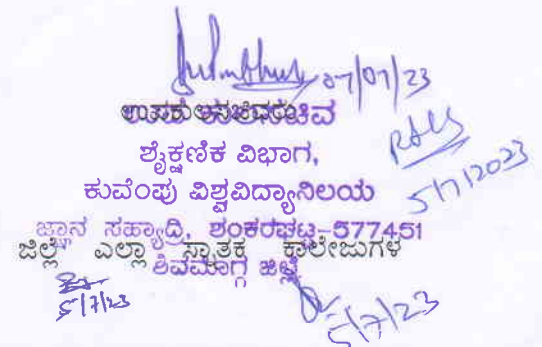 07/07/23
ಉಪಕುಲಸಚಿವ
ಶೈಕ್ಷಣಿಕ ವಿಭಾಗ,
ಕುವೆಂಪು ವಿಶ್ವವಿದ್ಯಾನಿಲಯ
5/7/2023
ಜ್ಞಾನ ಸಹ್ಯಾದ್ರಿ, ಶಂಕರಘಟ್ಟ-577451
ಜಿಲ್ಲೆ ಎಲ್ಲಾ ಸ್ನಾತಕ ಕಾಲೇಜುಗಳ
ಶಿವಮೊಗ್ಗ ಜಿಲ್ಲೆ
5/7/23
5/7/23